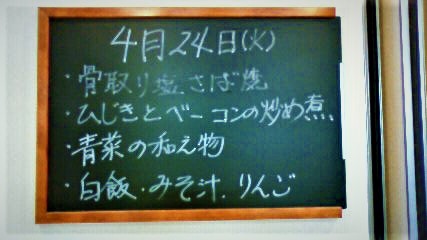 4月24日(火)
・骨取り塩さば焼
・ひじきとベーコンの炒め煮
・青菜の和え物
・白飯・みそ汁.りんご